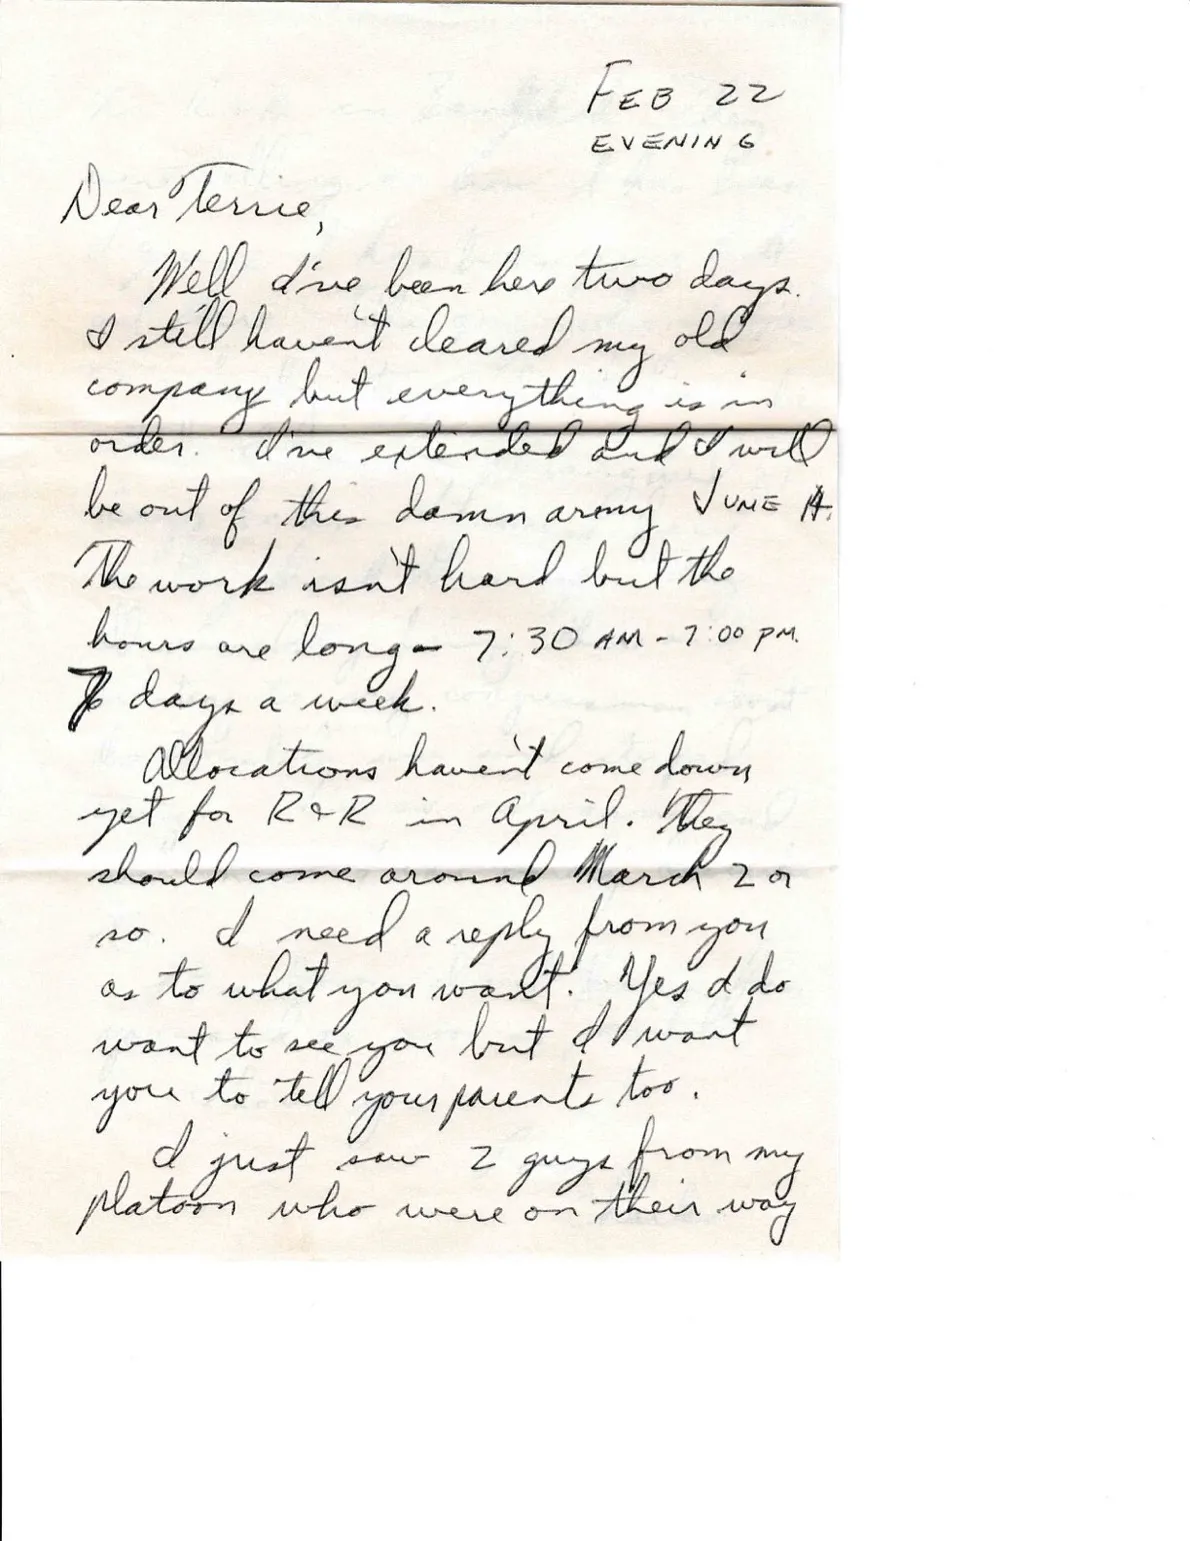 FEB 22
EVENING
Dear Terrie,
Well I've been here two days.
I still haven't cleared my old
company but everything is in
order. I've extended and I will
be out of this damn army JUNE
The work isn't hard but the
hours are long - 7:30 AM - 7:00 PM.
7 days a week.
Allocations haven't come down
yet for R & R in April. They
should come around March 2 or
so. I need a reply from you
as to what you want. Yes I do
want to see you but I want
you to tell your parents too.
I just saw 2 guys from my
platoon who were on their way